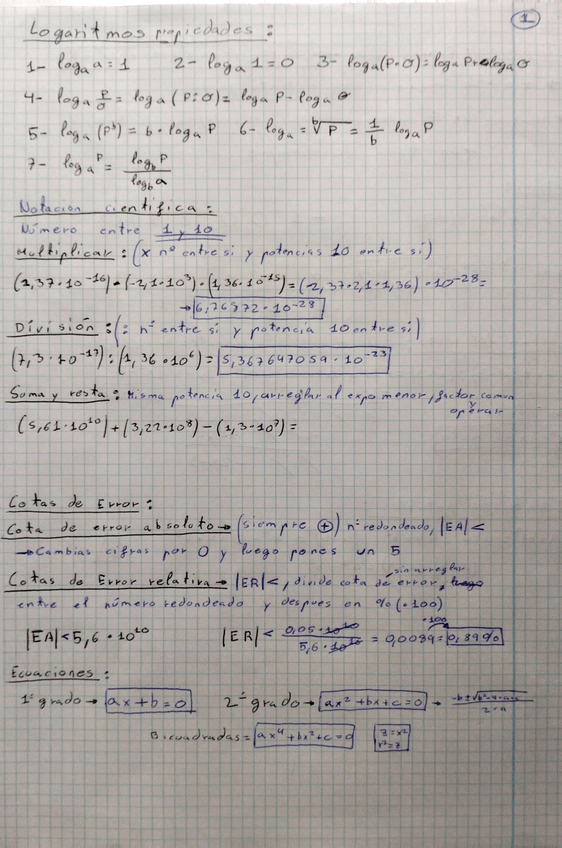 1
Logaritmos propiedades:
1- logₐ a = 1 2- logₐ 1 = 0 3- logₐ(P·Q) = logₐ P + logₐ Q
4- logₐ P/Q = logₐ (P:Q) = logₐ P - logₐ Q
5- logₐ (Pᵇ) = b · logₐ P 6- logₐ = ᵇ√P = 1/b logₐ P
7- logₐ P = log_b P / log_b a
Notación científica:
Número entre 1 y 10
Multiplicar: (x nº entre si y potencias 10 entre sí)
(2,37·10⁻¹⁶)·(-2,1·10³)·(1,36·10⁻¹⁵) = (-2,37·2,1·1,36)·10⁻²⁸ =
→ 6,76872·10⁻²⁸
División: (: nº entre si y potencia 10 entre si)
(7,3·10⁻¹⁷):(1,36·10⁶) = 5,367647059·10⁻²³
Suma y resta: Misma potencia 10, arreglar al expo menor, factor comun
y operar
(5,61·10¹⁰)+(3,22·10⁸)-(1,3·10⁷)=
Cotas de Error:
Cota de error absoluto → (siempre ⊕) nº redondeado, |EA| <
→ Cambias cifras por 0 y luego pones un 5
sin arreglar
Cotas de Error relativa → |ER| <, divide cota de error, luego
entre el número redondeado y despues en % (·100)
|EA| < 5,6·10¹⁰ |ER| < 0,05·10¹⁰ / 5,6·10¹⁰ = 0,0089 = 0,89% ·100
Ecuaciones:
1º grado → ax+b=0 2º grado → ax²+bx+c=0 → -b±√b²-4·a·c / 2·a
Bicuadradas = ax⁴+bx²+c=0